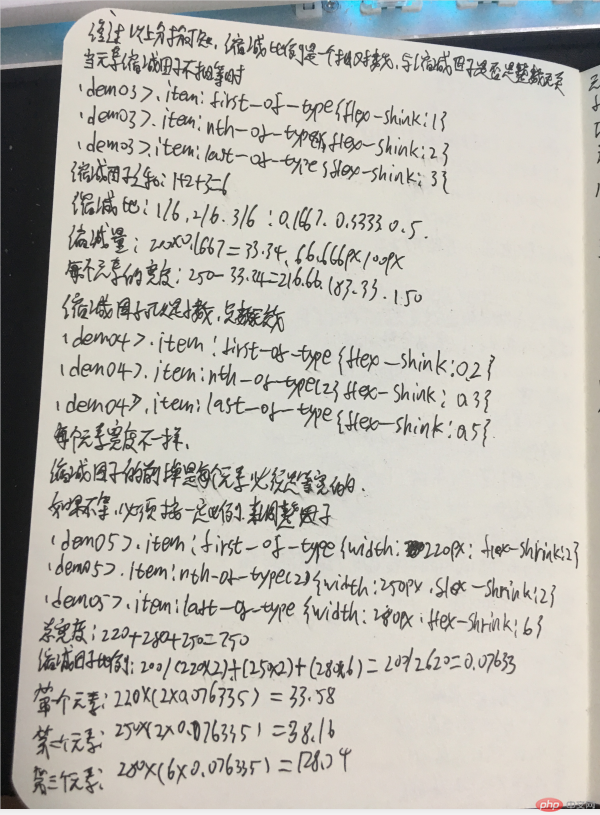 经过以上分析可知,缩减比例是一个相对数,与缩减因子是否是整数无关
当元素缩减因子不相等时
.demo3>.item:first-of-type{flex-shink:1}
.demo3>.item:nth-of-type{flex-shink:2}
.demo3>.item:last-of-type{flex-shink:3}
缩减因子之和:1+2+3=6
缩减比:1/6,2/6.3/6:0.1667.0.3333 0.5.
缩减量:200x0.1667=33.34.66.666px,100px
每个元素的宽度:250-33.34=216.66.183.33.150
缩减因子可以是小数,
.demo4>.item:first-of-type{flex-shink:0.2}
.demo4>.item:nth-of-type(2){flex-shink:0.3}
.demo4>.item:last-of-type{flex-shink:0.5}.
每个元素宽度不一样.
缩减因子的前提是每个元素必须是等宽的.
如果不等,必须按一定比例来调整因子
.demo5>.item:first-of-type{width:220px;flex-shrink:2}
.demo5>.item:nth-of-type(2){width:250px.flex-shrink:2}
.demo5>.item:last-of-type{width:280px.flex-shrink:6}
总宽度:220+280+250=750
缩减因子比例:200/(220x2)+(250x2)+(280x6)=200/2620=0.07633
第一个元素:220x(2x0.076335)=33.58
第二个元素:250x(2x0.076335)=38.16
第三个元素:280x(6x0.076335)=128.24
php 中文网